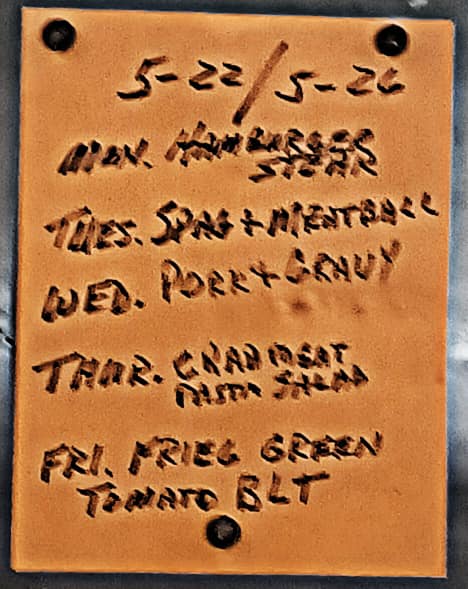 5-22/5-26
MON. HAMBURGER
STEAK
TUES. SPAG + MEATBALL
WED. PORK + GRAVY
THUR. CRABMEAT
PASTA SALAD
FRI. FRIED GREEN
TOMATO BLT